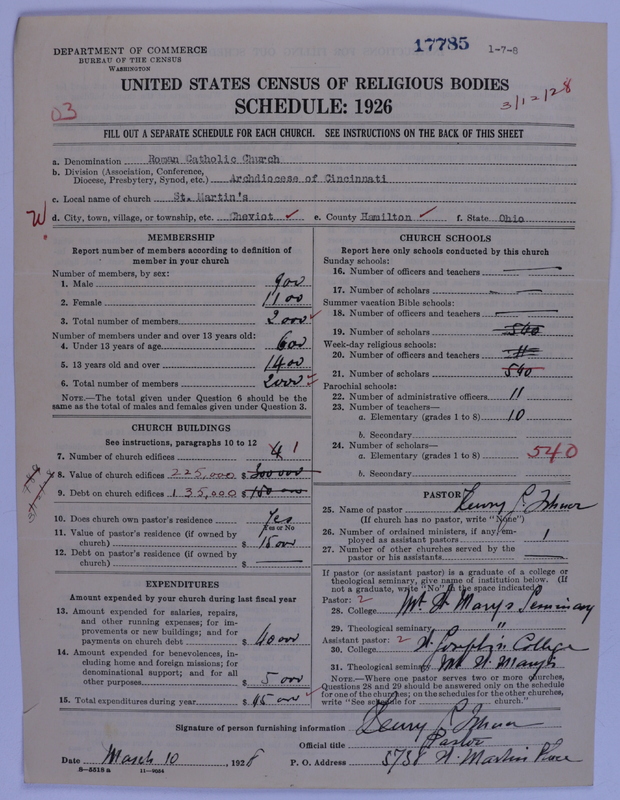 DEPARTMENT OF COMMERCE
BUREAU OF THE CENSUS
WASHINGTON
17785
1-7-8
UNITED STATES CENSUS OF RELIGIOUS BODIES
SCHEDULE: 1926
03
3/12/28
FILL OUT A SEPARATE SCHEDULE FOR EACH CHURCH. SEE INSTRUCTIONS ON THE BACK OF THIS SHEET
a. Denomination Roman Catholic Church
b. Division (Association, Conference,
Diocese, Presbytery, Synod, etc.) Archdiocese of Cincinnati
c. Local name of church St. Martin's
W
d. City, town, village, or township, etc. Cheviot ✓ e. County Hamilton ✓ f. State Ohio
MEMBERSHIP
Report number of members according to definition of
member in your church
Number of members, by sex:
1. Male 900
2. Female 1100
3. Total number of members 2000 ✓
Number of members under and over 13 years old:
4. Under 13 years of age 600
5. 13 years old and over 1400
6. Total number of members 2000 ✓
NOTE.—The total given under Question 6 should be the
same as the total of males and females given under Question 3.
CHURCH BUILDINGS
See instructions, paragraphs 10 to 12
7. Number of church edifices 4 1
8. Value of church edifices 225,000 $ 300000
9. Debt on church edifices 135,000 $ 180 000
10. Does church own pastor's residence Yes
Yes or No
11. Value of pastor's residence (if owned by
church) $ 15000
12. Debt on pastor's residence (if owned by
church) $
EXPENDITURES
Amount expended by your church during last fiscal year
13. Amount expended for salaries, repairs,
and other running expenses; for im-
provements or new buildings; and for
payments on church debt $ 40000
14. Amount expended for benevolences, in-
cluding home and foreign missions; for
denominational support; and for all
other purposes $ 5000
15. Total expenditures during year $ 45000 ✓
CHURCH SCHOOLS
Report here only schools conducted by this church
Sunday schools:
16. Number of officers and teachers
17. Number of scholars
Summer vacation Bible schools:
18. Number of officers and teachers
19. Number of scholars 540
Week-day religious schools:
20. Number of officers and teachers 11
21. Number of scholars 540
Parochial schools:
22. Number of administrative officers 11
23. Number of teachers—
a. Elementary (grades 1 to 8) 10
b. Secondary
24. Number of scholars—
a. Elementary (grades 1 to 8) 540
b. Secondary
PASTOR
25. Name of pastor Henry
(If church has no pastor, write "None")
26. Number of ordained ministers, if any, em-
ployed as assistant pastors 1
27. Number of other churches served by the
pastor or his assistants
If pastor (or assistant pastor) is a graduate of a college or
theological seminary, give name of institution below. (If
not a graduate, write "No" in the space indicated)
Pastor: 2
28. College Mt. St Marys Seminary
29. Theological seminary "
Assistant pastor: 2
30. College St. Joseph's College
31. Theological seminary Mt St. Marys
NOTE.—Where one pastor serves two or more churches,
Questions 28 and 29 should be answered only on the schedule
for one of the churches; on the schedules for the other churches,
write "See schedule for church."
Signature of person furnishing information Henry
Official title Pastor
Date March 10, 1928 P. O. Address St Martin Place
8—5518 a 11—9034